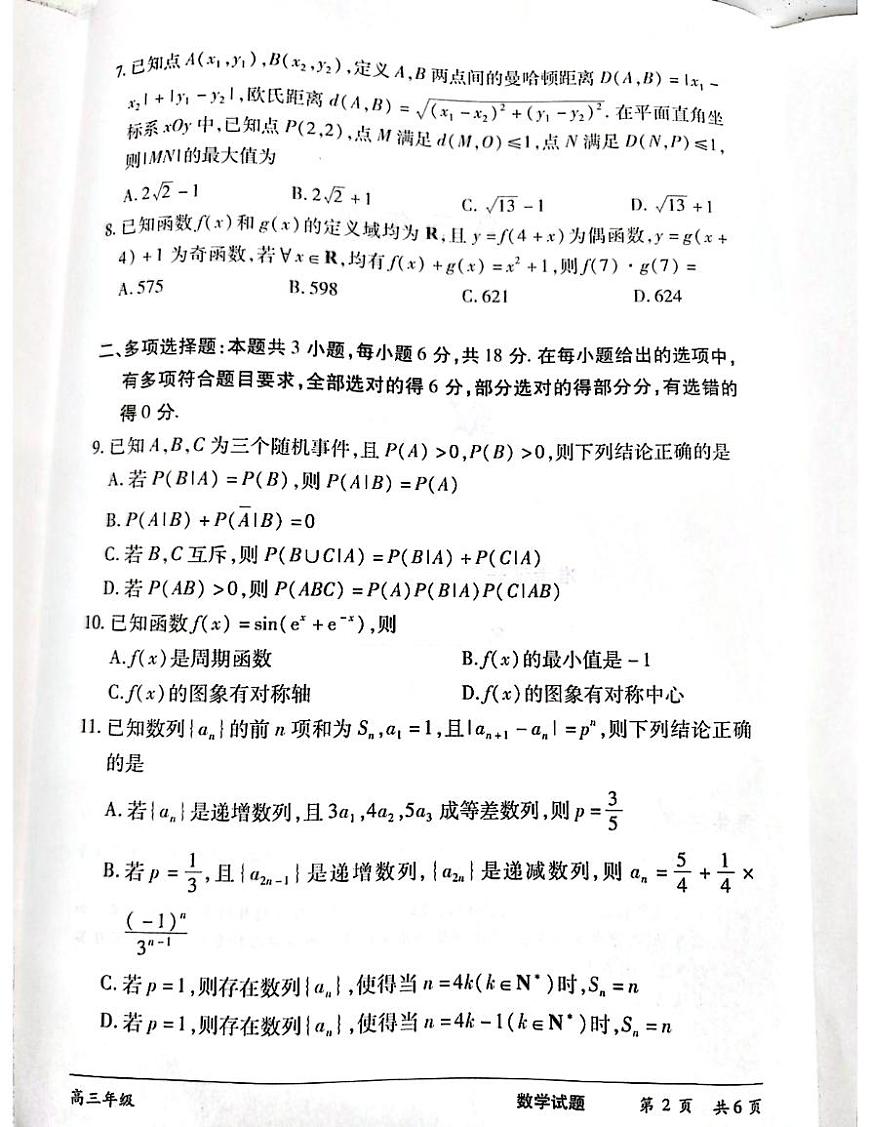 7. 已知点 A(x₁,y₁),B(x₂,y₂),定义 A,B 两点间的曼哈顿距离 D(A,B) = |x₁ -
x₂| + |y₁ - y₂|,欧氏距离 d(A,B) = √((x₁ - x₂)² + (y₁ - y₂)²). 在平面直角坐
标系 xOy 中,已知点 P(2,2),点 M 满足 d(M,O) ≤1,点 N 满足 D(N,P) ≤1,
则|MN|的最大值为
A. 2√2 - 1 B. 2√2 + 1 C. √13 - 1 D. √13 + 1
8. 已知函数 f(x)和 g(x)的定义域均为 R,且 y = f(4 + x)为偶函数,y = g(x +
4) + 1 为奇函数,若∀x∈R,均有 f(x) + g(x) = x² + 1,则 f(7) · g(7) =
A. 575 B. 598 C. 621 D. 624
二、多项选择题:本题共 3 小题,每小题 6 分,共 18 分. 在每小题给出的选项中,
有多项符合题目要求,全部选对的得 6 分,部分选对的得部分分,有选错的
得 0 分.
9. 已知 A,B,C 为三个随机事件,且 P(A) >0,P(B) >0,则下列结论正确的是
A. 若 P(B|A) = P(B),则 P(A|B) = P(A)
B. P(A|B) + P(A̅|B) = 0
C. 若 B,C 互斥,则 P(B∪C|A) = P(B|A) + P(C|A)
D. 若 P(AB) >0,则 P(ABC) = P(A)P(B|A)P(C|AB)
10. 已知函数 f(x) = sin(eˣ + e⁻ˣ),则
A. f(x)是周期函数 B. f(x)的最小值是 - 1
C. f(x)的图象有对称轴 D. f(x)的图象有对称中心
11. 已知数列{aₙ}的前 n 项和为 Sₙ,a₁ = 1,且|aₙ₊₁ - aₙ| = pⁿ,则下列结论正确
的是
A. 若{aₙ}是递增数列,且 3a₁,4a₂,5a₃ 成等差数列,则 p = 3/5
B. 若 p = 1/3,且{a₂ₙ₋₁}是递增数列,{a₂ₙ}是递减数列,则 aₙ = 5/4 + 1/4 ×
(-1)ⁿ/3ⁿ⁻¹
C. 若 p = 1,则存在数列{aₙ},使得当 n = 4k(k∈N*)时,Sₙ = n
D. 若 p = 1,则存在数列{aₙ},使得当 n = 4k - 1(k∈N*)时,Sₙ = n
高三年级 数学试题 第 2 页 共 6 页